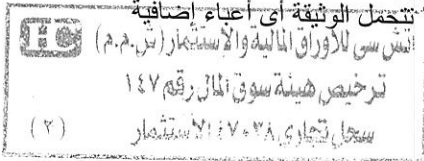 تتحمل الوثيقة أى أعباء إضافية
اتش سى للأوراق المالية والإستثمار (ش.م.م)
HC
ترخيص هيئة سوق المال رقم ١٤٧
سجل تجارى ٤٧٠٢٨ الأستثمار
(٢)